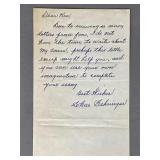 Dear Ken,
Due to receiving so many
letters from fans, I do not
have the time to write about
my career, perhaps this little
recap might help you, and
you can use your own
imagination to complete
your essay
Best Wishes